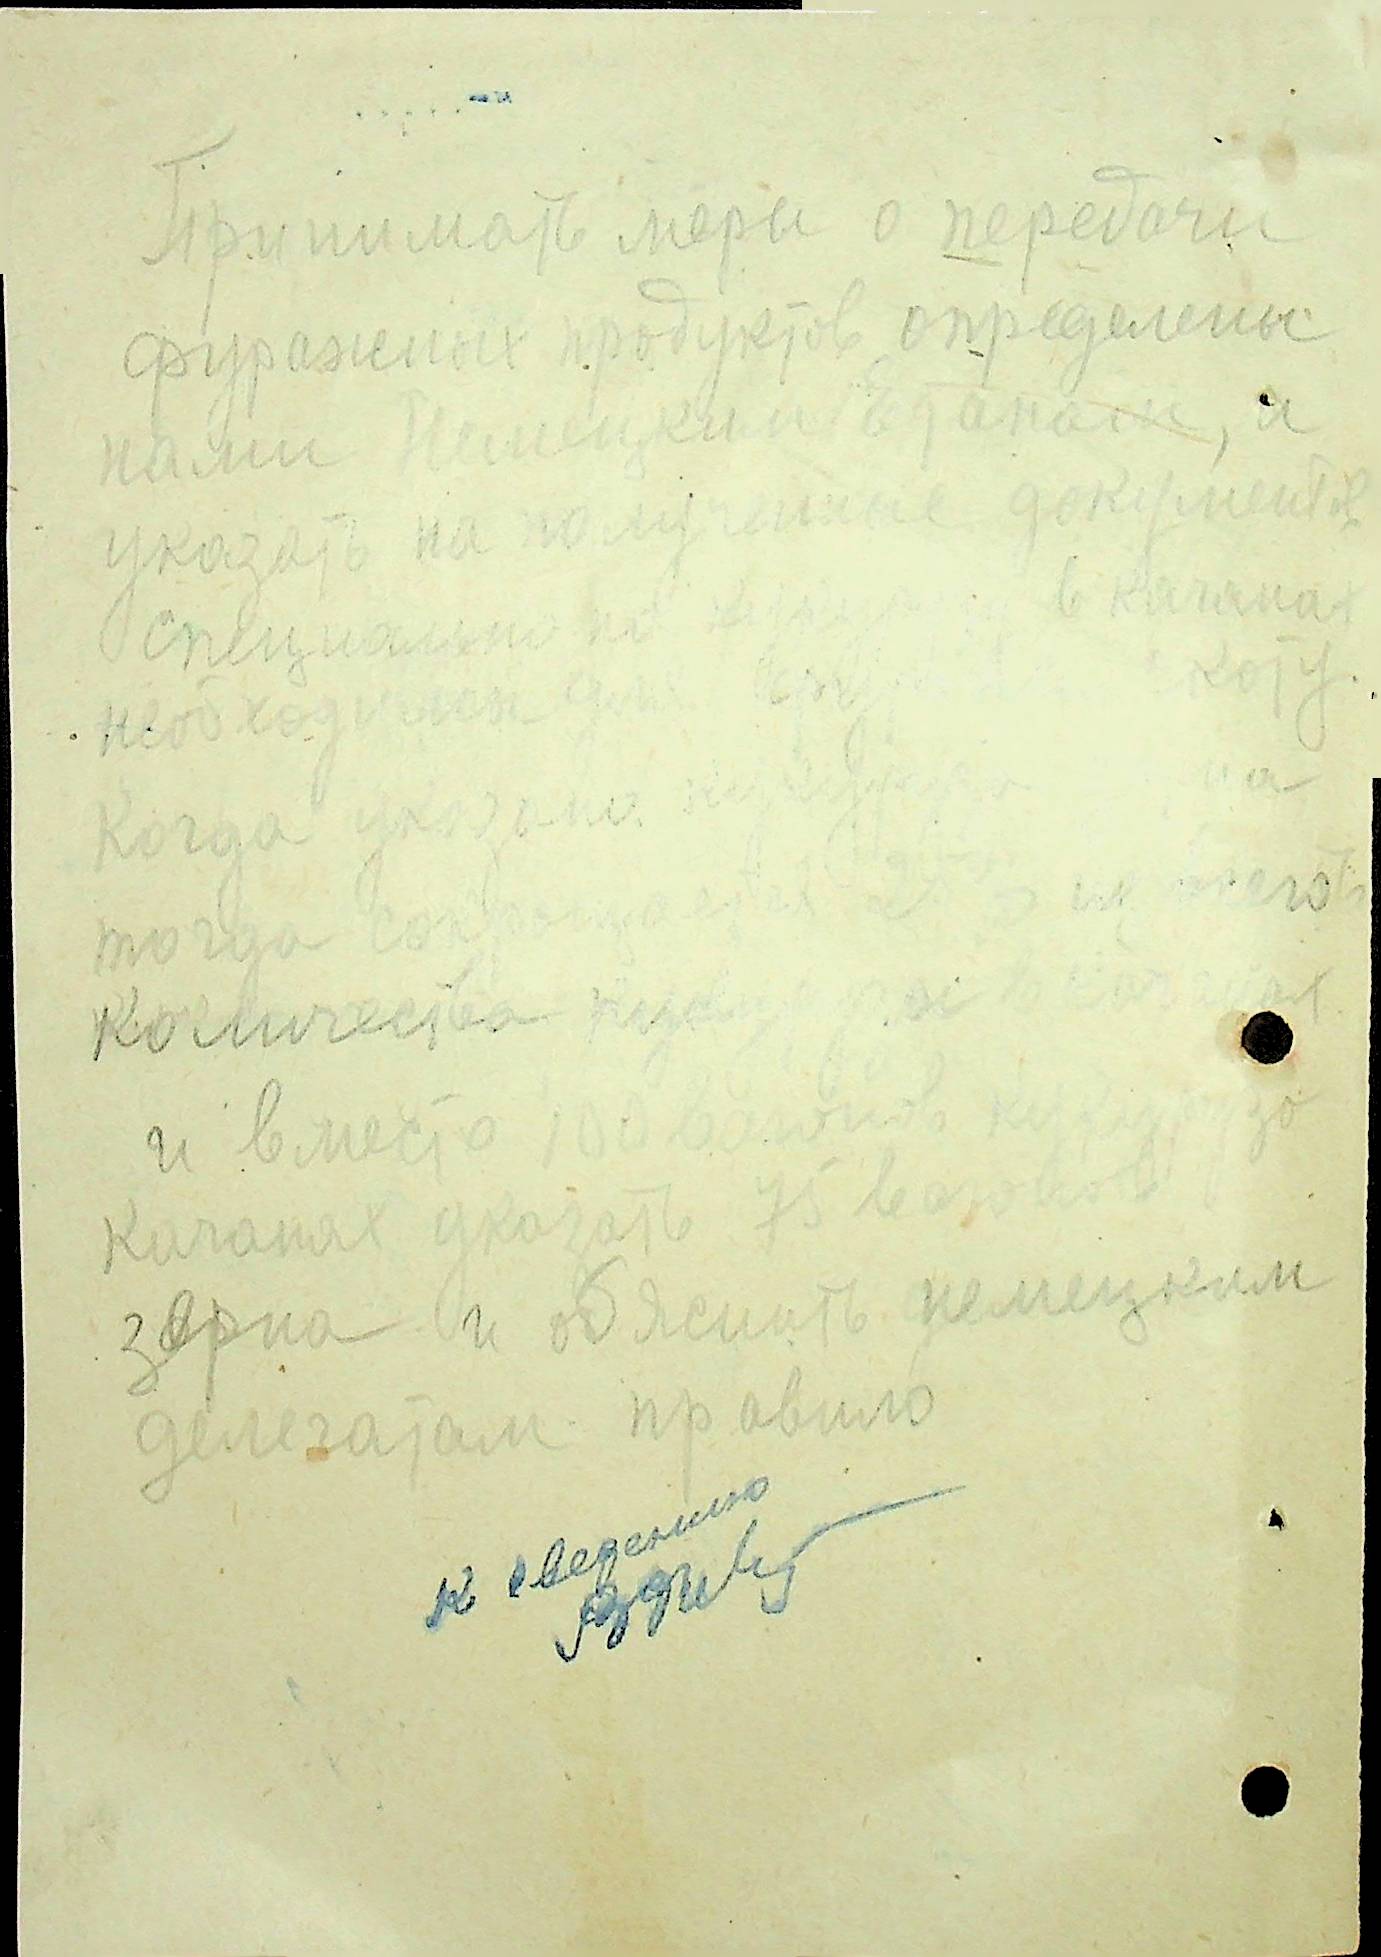 Принимать меры о передачи
фуражных продуктов определены
нами Немецким Етапом, и
указать на полученные документы
специально по кукурузу в качанах
необходимы для скоту.
Когда указана кукуруза на
тогда сокращается 25% их всего
количества кукурузы в качанах
и вместо 100 вагонов кукурузо
качанах указать 75 вагонов
зерна и обяснить немецким
делегатам правило
к сведению